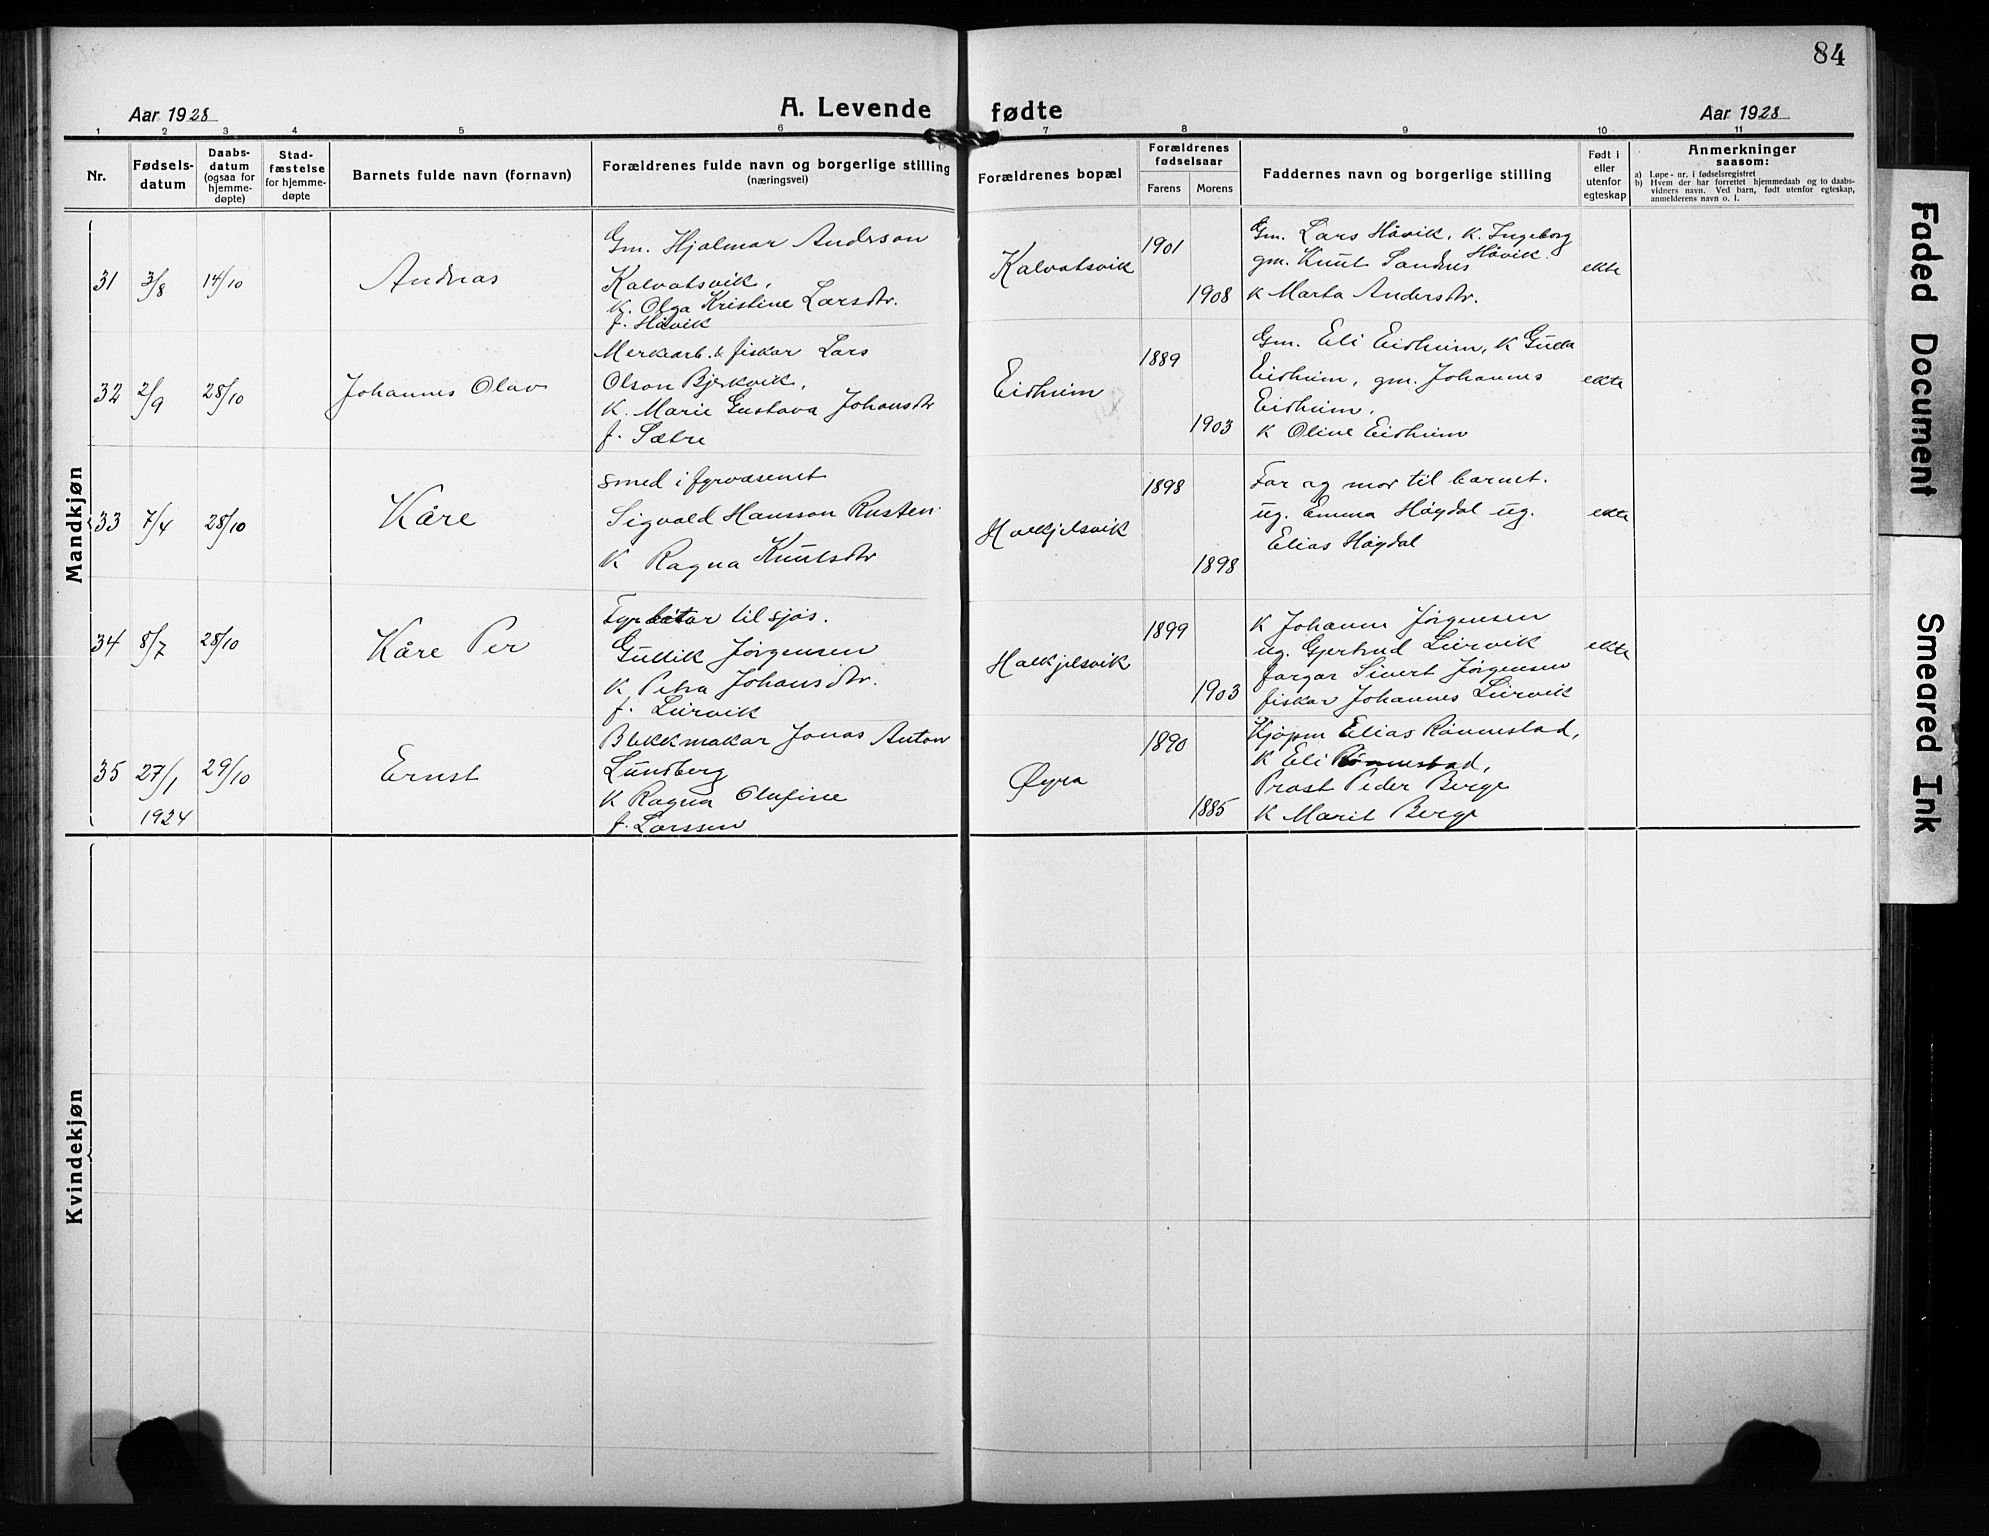 84
Aar 1928
A. Levende fødte
Aar 1928
1 2 3 4 5 6 7 8 9 10 11
Nr.
Fødsels-
datum
Daabs-
datum
(ogsaa for
hjemme-
døpte)
Stad-
fæstelse
for hjemme-
døpte
Barnets fulde navn (fornavn)
Forældrenes fulde navn og borgerlige stilling
(næringsvei)
Forældrenes bopæl
Forældrenes
fødselsaar
Farens Morens
Faddernes navn og borgerlige stilling
Født i
eller
utenfor
egteskap
Anmerkninger
saasom:
a) Løpe-nr. i fødselsregistret
b) Hvem der har forrettet hjemmedaab og to daabs-
vidners navn. Ved barn, født utenfor egteskap,
anmelderens navn o. l.
Mandkjøn
31 3/8 14/10 Andreas
Gm. Hjalmar Anderson
Kalvatsvik,
K. Olga Kristine Larsdtr.
f. Håvik
Kalvatsvik
1901
1908
Gm. Lars Håvik, K. Ingeborg
Håvik.
gm. Knut Sandnes
K Marta Andersdtr.
ekte
32 2/9 28/10 Johannes Olav
Merkearb. & fiskar Lars
Olson Bjerkvik,
K. Marie Gustava Johansdtr
f. Sætre
Eidheim
1889
1903
Gm. Eli Eidheim, K Guda
Eidheim, gm. Johannes
Eidheim.
K Oline Eidheim
ekte
33 7/4 28/10 Kåre
smed i fyrvæsenet
Sigvald Hansson Rusten.
K Ragna Knutsdtr
Halkjelsvik
1898
1898
Far og mor til barnet.
ug. Emma Høgdal ug.
Elias Høgdal
ekte
34 8/7 28/10 Kåre Per
Fyrbøtar til sjøs.
Gullik Jørgensen
K Petra Johansdtr.
f. Lurvik
Halkjelsvik
1899
1903
K Johanne Jørgensen
ug. Gjertrud Lurvik
fargar Sivert Jørgensen
fiskar Johannes Lurvik
ekte
35 27/1 1924 29/10 Ernst
Blekkmakar Jonas Anton
Lundberg
K Ragna Olufine
f. Larssen
Øyra
1890
1885
Kjøpm Elias Rønnestad,
K Eli Rønnestad,
Prost Peder Berge
K Marit Berge
Kvindekjøn
Faded Document
Smeared Ink